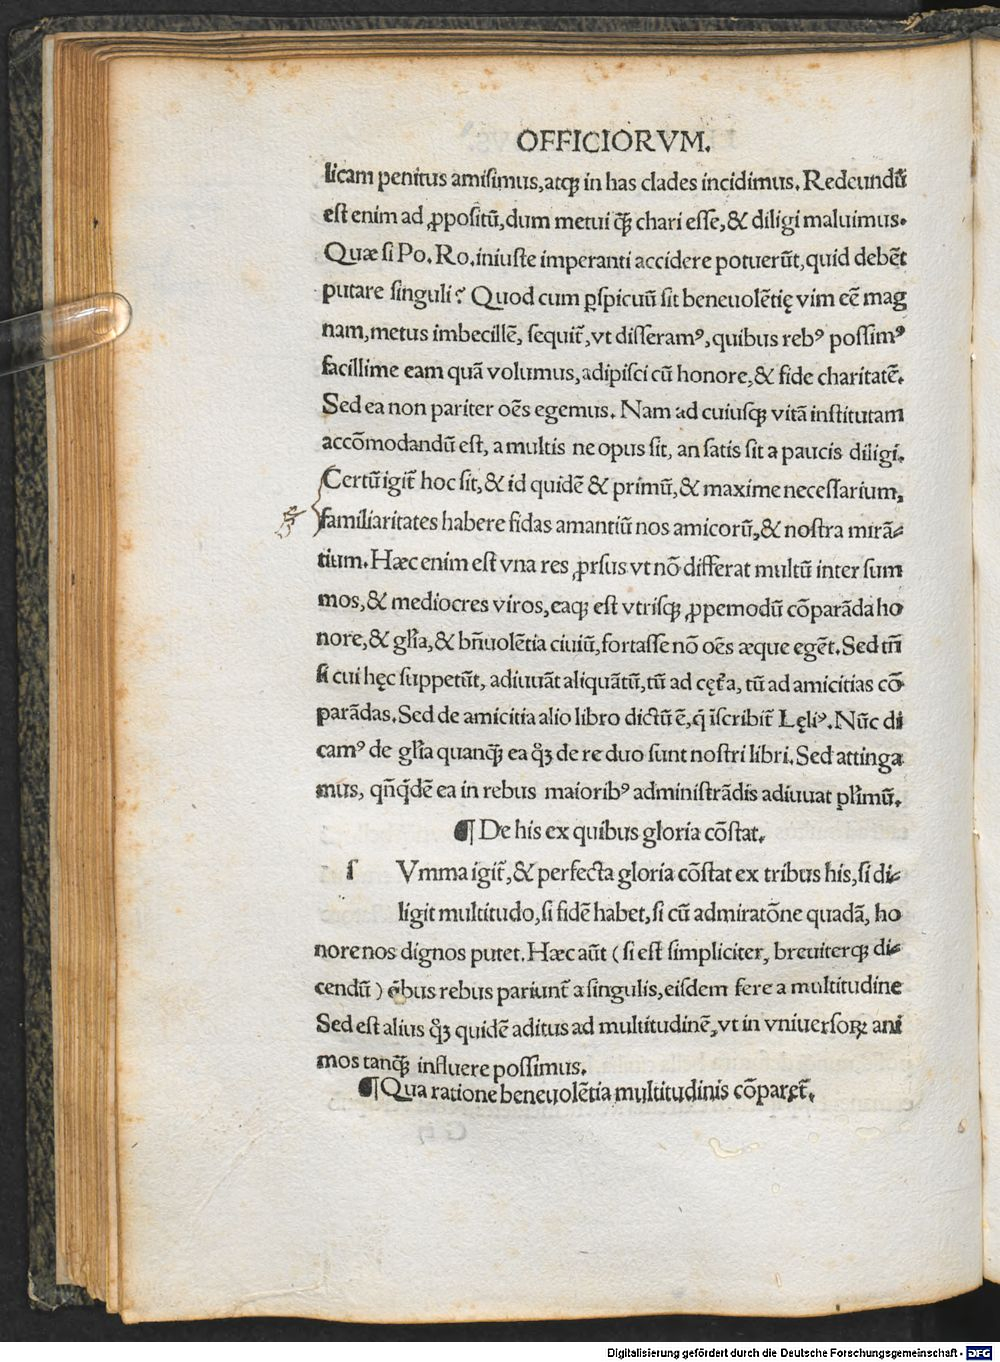 OFFICIORVM.
licam penitus amisimus, atqꝫ in has clades incidimus. Redeundū
est enim ad ꝓpositū, dum metui q̄ꝫ chari esse, & diligi maluimus.
Quæ si Po. Ro. iniuste imperanti accidere potuerūt, quid debēt
putare singuli? Quod cum ꝑspicuū sit beneuolētię vim eē mag
nam, metus imbecillē, sequit̄, vt disseramꝰ, quibus rebꝰ possimꝰ
facillime eam quā volumus, adipisci cū honore, & fide charitatē.
Sed ea non pariter oēs egemus. Nam ad cuiusqꝫ vitā institutam
accōmodandū est, a multis ne opus sit, an satis sit a paucis diligi.
Certū igit̄ hoc sit, & id quidē & primū, & maxime necessarium,
familiaritates habere fidas amantiū nos amicorū, & nostra mirā⸗
tium. Hæc enim est vna res ꝓrsus vt nō differat multū inter sum
mos, & mediocres viros, eaqꝫ est vtrisqꝫ ꝓpemodū cōparāda ho
nore, & gľia, & bn̄uolētia ciuiū, fortasse nō oēs æque egēt. Sed tn̄
si cui hęc suppetūt, adiuuāt aliquātū, tū ad cęt̄a, tū ad amicitias cō⸗
parādas. Sed de amicitia alio libro dictū ē, q̄ īscribit̄ Lęliꝰ. Nūc di
camꝰ de gľia quanq̄ꝫ ea q̊ꝫ de re duo sunt nostri libri. Sed attinga
mus, qn̄q́dē ea in rebus maioribꝰ administrādis adiuuat pľimū.
¶ De his ex quibus gloria cōstat.
ſ Vmma igit̄, & perfecta gloria cōstat ex tribus his, si di⸗
ligit multitudo, si fidē habet, si cū admiratōne quadā, ho
nore nos dignos putet. Hæc aūt (si est simpliciter, breuiterqꝫ di⸗
cendū) q̇bus rebus pariunt̄ a singulis, eisdem fere a multitudine
Sed est alius q̊ꝫ quidē aditus ad multitudinē, vt in vniuersoꝝ ani
mos tanq̄ꝫ influere possimus.
¶ Qua ratione beneuolētia multitudinis cōparet̄.
Digitalisierung gefördert durch die Deutsche Forschungsgemeinschaft - DFG